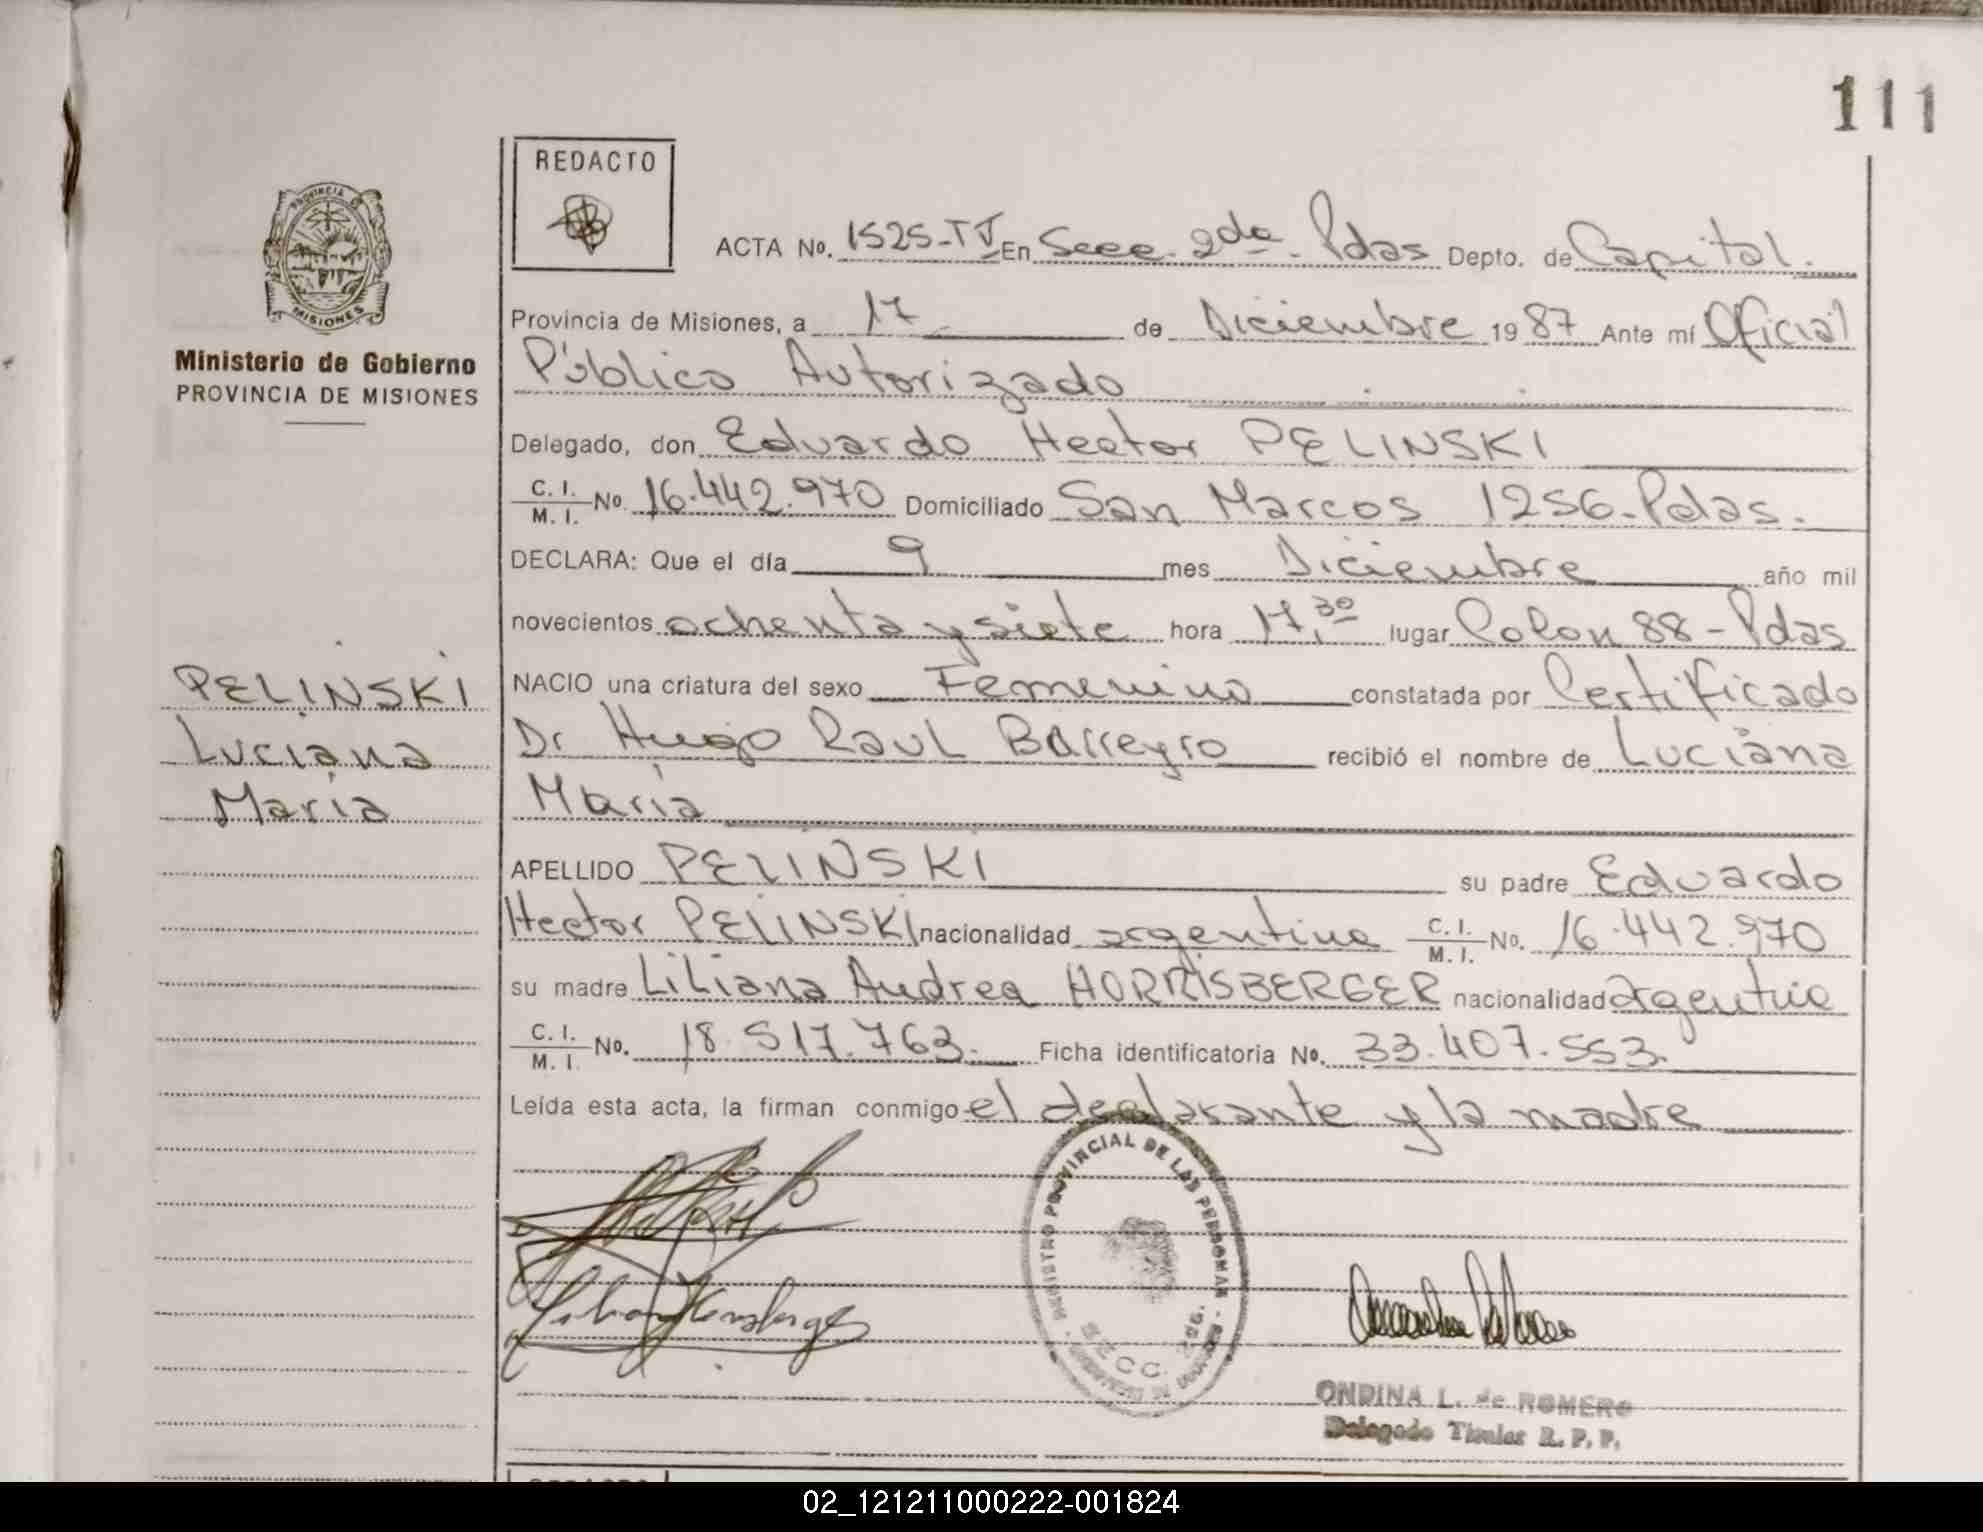 111
REDACTO
ACTA No. 1525-TV En Secc. 2da. Pdas Depto. de Capital.
PROVINCIA
MISIONES
Provincia de Misiones, a 17 de Diciembre 1987 Ante mí Oficial
Ministerio de Gobierno
PROVINCIA DE MISIONES
Público Autorizado
Delegado, don Eduardo Hector PELINSKI
C. I. M. I. No. 16.442.970 Domiciliado San Marcos 1256-Pdas.
DECLARA: Que el día 9 mes Diciembre año mil
novecientos ochenta y siete hora 17,30 lugar Colon 88-Pdas
PELINSKI
Luciana
María
NACIO una criatura del sexo Femenino constatada por Certificado
Dr Hugo Raul Barreyro recibió el nombre de Luciana
María
APELLIDO PELINSKI su padre Eduardo
Hector PELINSKI nacionalidad argentina C. I. M. I. No. 16.442.970
su madre Liliana Andrea HORRISBERGER nacionalidad argentina
C. I. M. I. No. 18.517.763. Ficha identificatoria No. 33.407.553.
Leída esta acta, la firman conmigo el declarante y la madre
REGISTRO PROVINCIAL DE LAS PERSONAS
SECC. 2da.
ONDINA L. de ROMERO
Delegado Titular R. P. P.
02_121211000222-001824